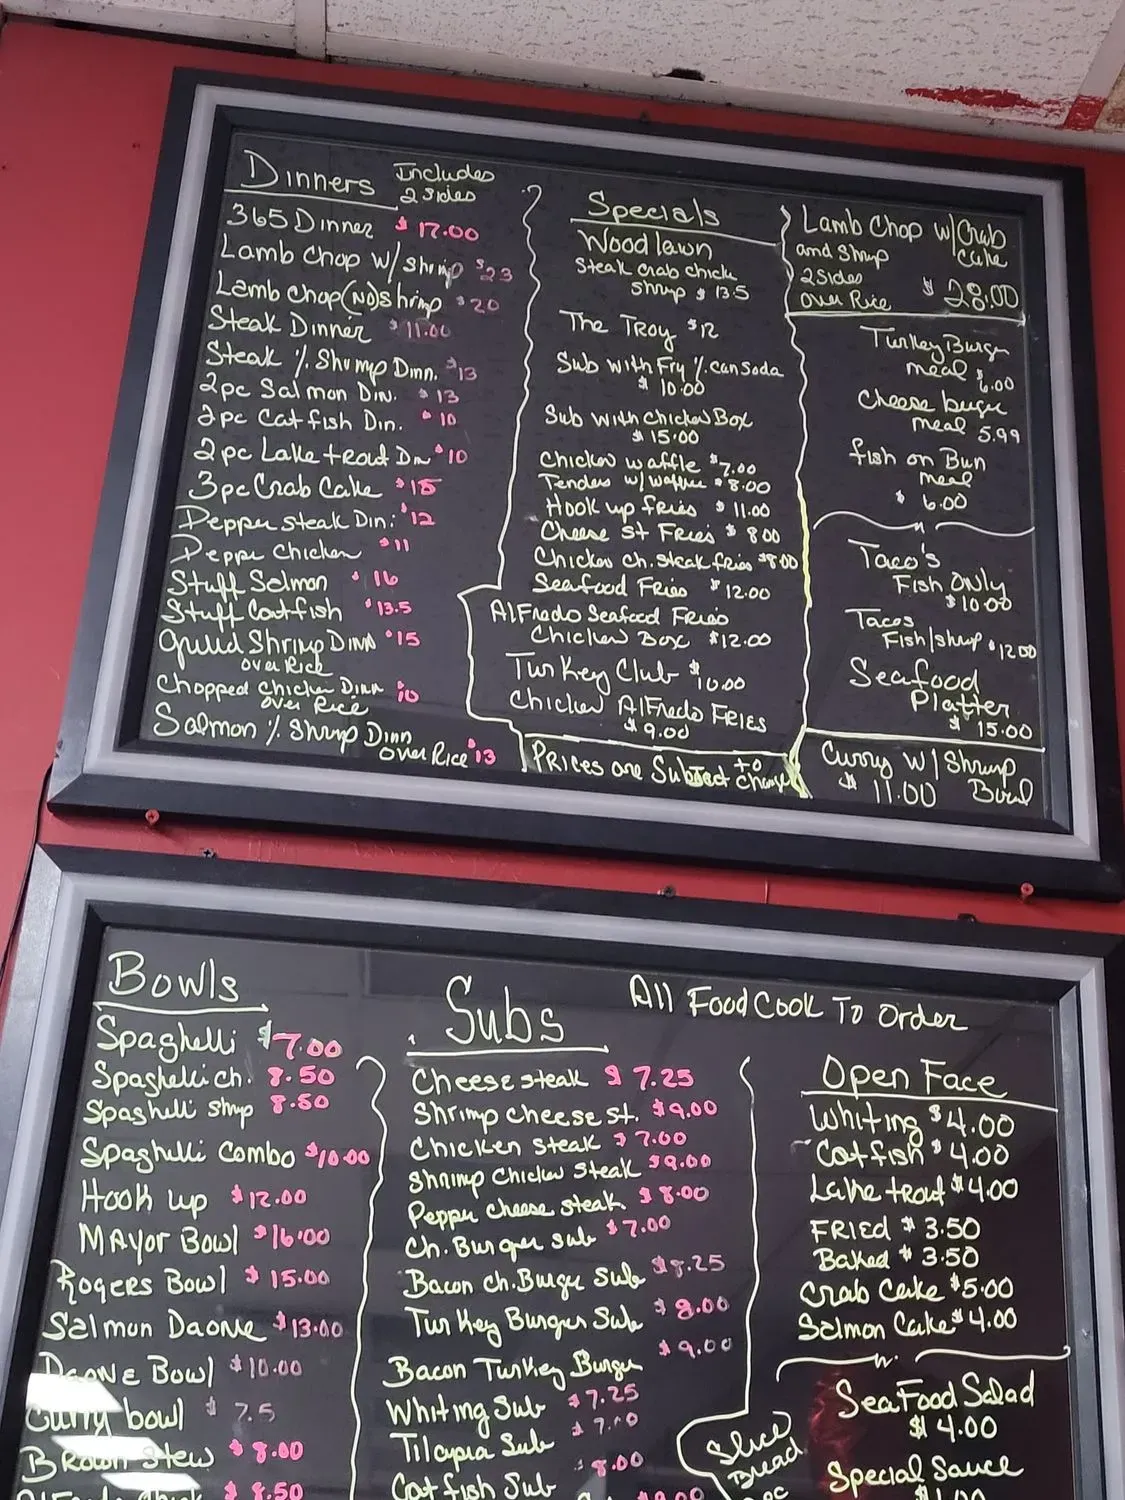 Dinners Includes
2 sides
365 Dinner $17.00
Lamb Chop w/ shrimp $23
Lamb Chop (NO) Shrimp $20
Steak Dinner $11.00
Steak %. Shrimp Dinn. $13
2pc Salmon Din. $13
2pc Catfish Din. $10
2pc Lake trout Din $10
3pc Crab Cake $15
Pepper steak Din: $12
Peppe Chicken $11
Stuff Salmon $16
Stuff Catfish $13.5
Grilld Shrimp DINN $15
over Rice
Chopped Chicken Dinn 10
over Rice
Salmon %. Shrimp Dinn
over Rice $13
Specials
Woodlawn
Steak crab chick
shrup $13.5
The Troy $12
Sub with Fry %. can Soda
$10.00
Sub with Chicken Box
$15.00
Chicken waffle $7.00
Tenders w/ waffle $8.00
Hook up fries $11.00
Cheese st Fries $8.00
Chicken ch. steak fries $8.00
Seafood Fries $12.00
AlFredo Seafood Fries
Chicken Box $12.00
Turkey Club $10.00
Chicken AlFredo FRIES
$9.00
PRICES are Subject to Change
Lamb Chop w/ Crab
cake
and shrup
2 Sides
over Rice $28.00
Turkey Burger
meal $6.00
Cheese burger
meal 5.99
fish on Bun
meal
$6.00
Taco's
Fish Only
$10.00
Tacos
Fish/shrup $12.00
Seafood
Platter
$15.00
Curry w/ Shrimp
$11.00 Bowl
Bowls
Spaghetti $7.00
Spaghetti ch. 8.50
Spaghetti shrup 8.50
Spaghetti Combo $10.00
Hook up $12.00
MAyor Bowl $16.00
Rogers Bowl $15.00
Salmon Daone $13.00
Daone Bowl $10.00
Curry bowl $7.5
Brown Stew $8.00
$8.50
Subs
Cheese steak $7.25
Shrimp cheese st. $9.00
Chicken steak $7.00
Shrimp Chicken Steak $9.00
Pepper cheese steak $8.00
Ch. Burger sub $7.00
Bacon ch. Burger Sub $8.25
Turkey Burger Sub $8.00
Bacon Turkey Burger $9.00
Whiting Sub $7.25
Tilapia Sub $7.00
Catfish Sub $8.00
All Food Cook To Order
Open Face
Whiting $4.00
Catfish $4.00
Lake trout $4.00
FRIED $3.50
Baked $3.50
Crab Cake $5.00
Salmon Cake $4.00
SeaFood Salad
$4.00
Slice
Bread
Special Sauce